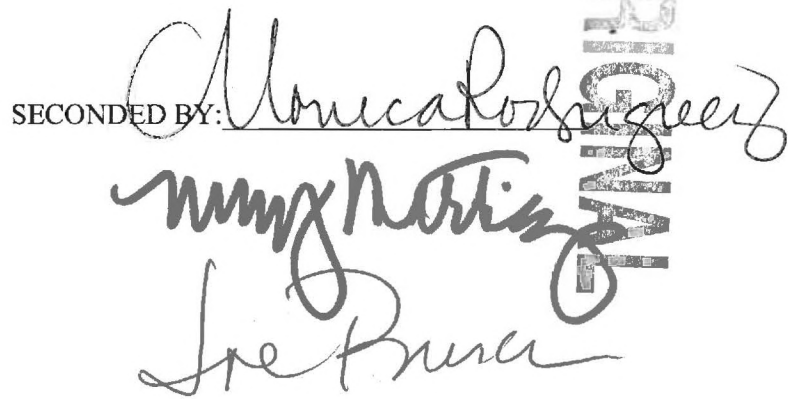 SECONDED BY: Monica Rodriguez
Nury Martinez
Joe
ORIGINAL